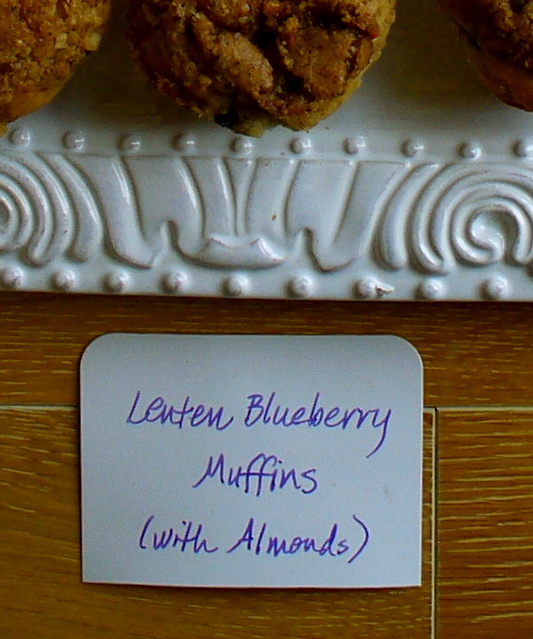 Lenten Blueberry
Muffins
(with Almonds)